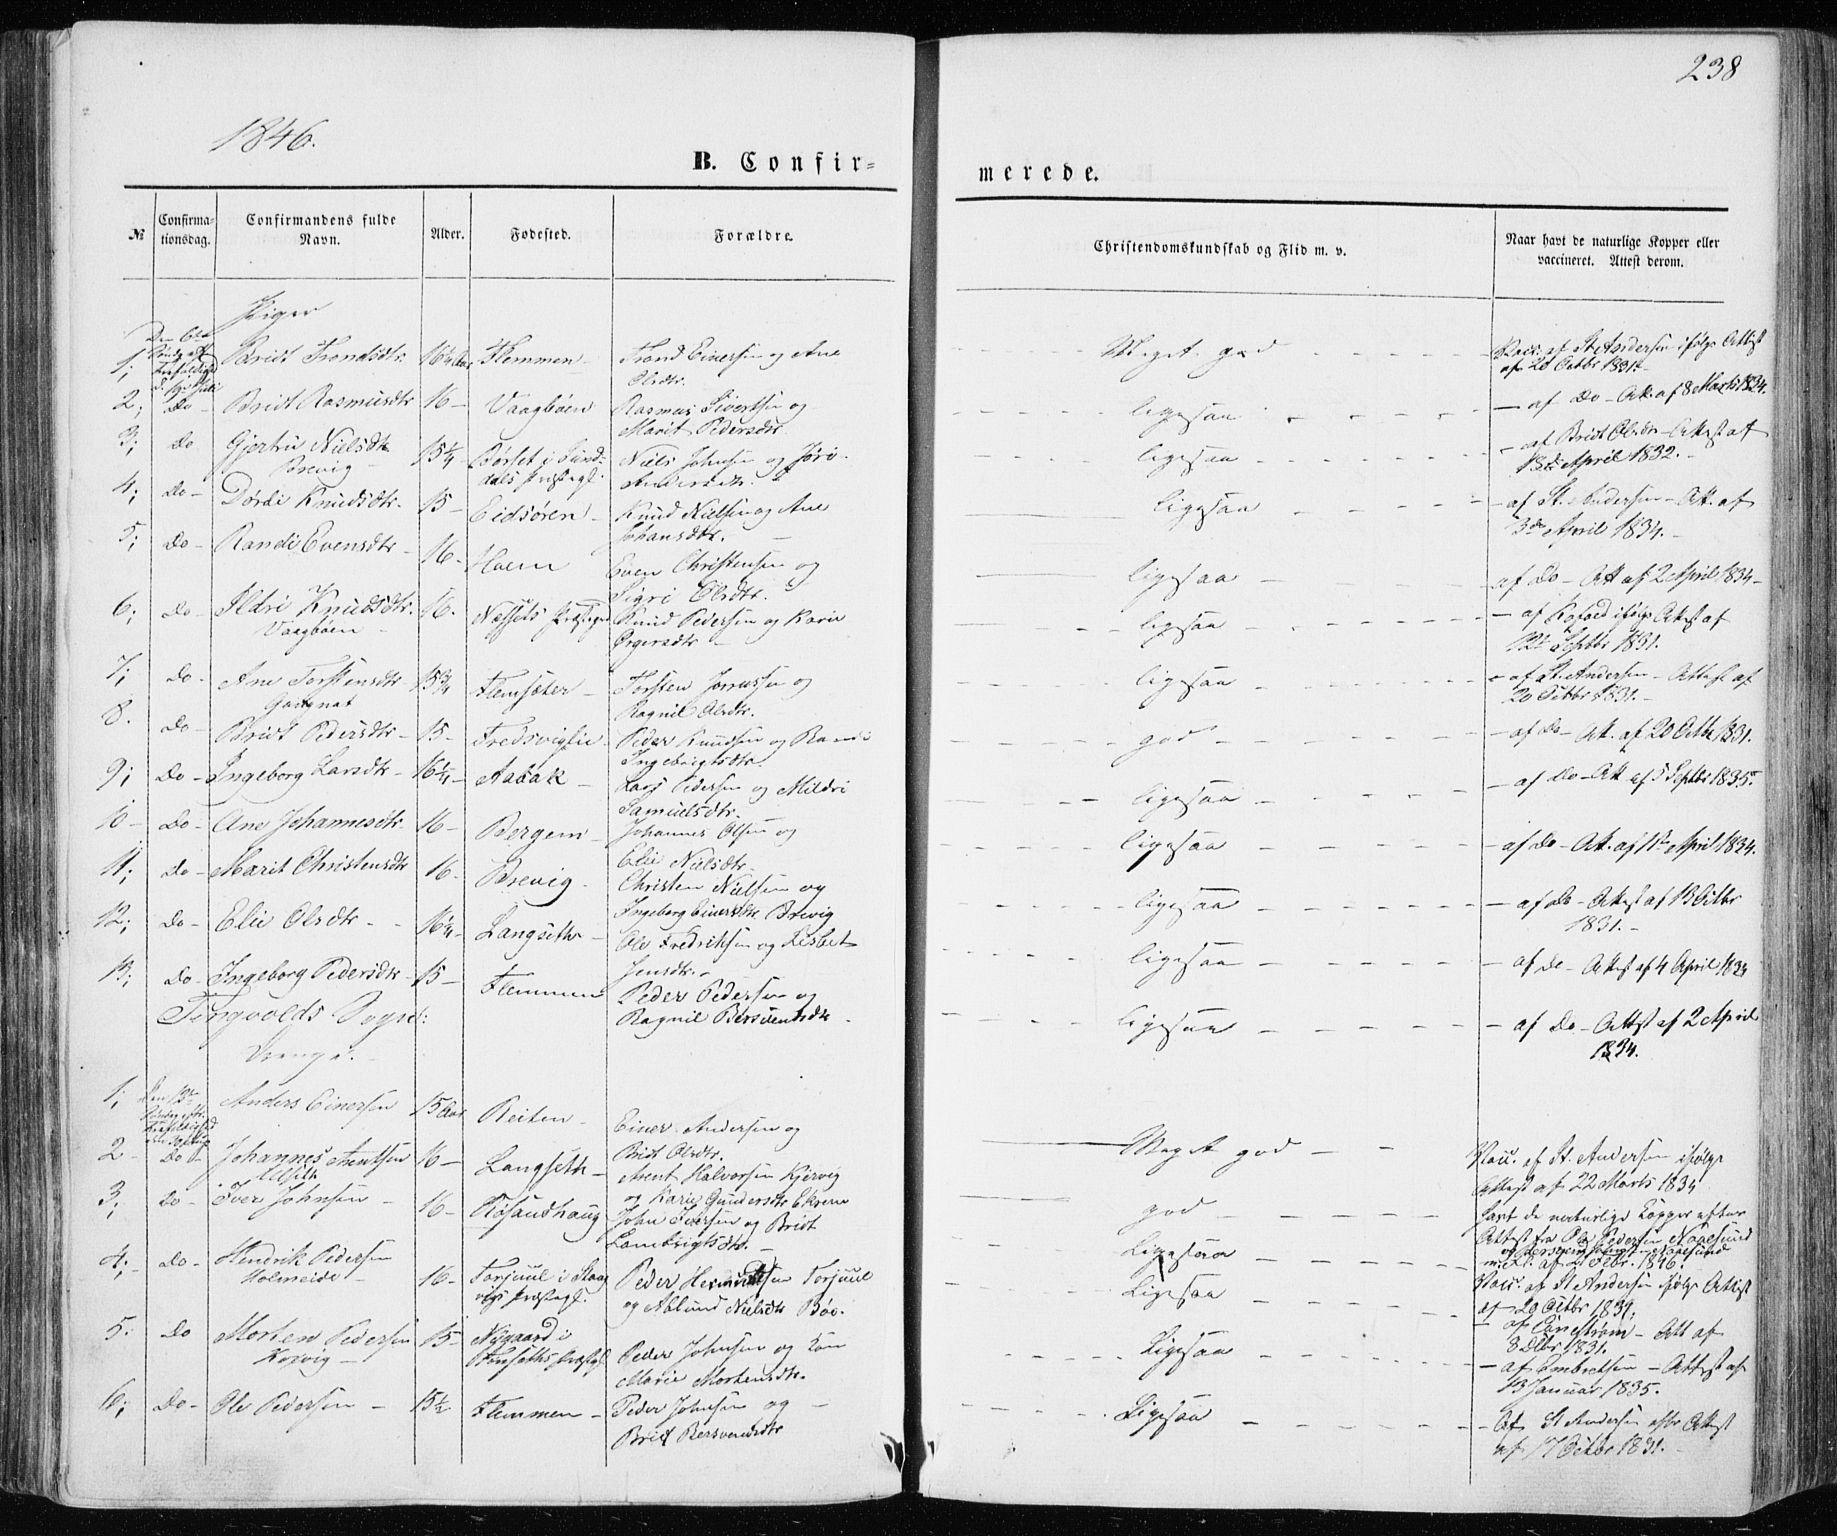 238
1846.
B. Confir=
merede.
№
Confirma-
tionsdag.
Confirmandens fulde
Navn.
Alder.
Fødested.
Forældre.
Christendomskundskab og Flid m. v.
Naar havt de naturlige Kopper eller
vaccineret. Attest derom.
Piger
1; Bridt Trondsdtr. 16¼ Aar Flemmen Trond Einersen og Ane
Olsdtr.
Meget god
Vacc. af St. Andersen ifølge Attest
af 20 Octbr 1831
2; Do Bridt Rasmusdtr 16 Vaagbøen Rasmus Sivertsen og
Marit Pedersdtr
ligesaa
af Do Att. af 8 Marts 1834.
3; Do Gjertru Nielsdtr 15¼ Børset i Sund-
Brevig
dals Præstegl.
Niels Johnsen og Jøri
Andersdtr.
ligesaa
af Bridt Olsdtr Attest af
13de April 1832.
4; Do Dordi Knudsdtr. 15 Eidsøren Knud Nielsen og Ane
Johansdtr.
ligesaa
af St. Andersen Att. af
3de April 1834.
5; Do Randi Evensdtr 16 Hoem Even Christensen og
Sigri Olsdtr.
ligesaa
af Do Att af 2 April 1834
6; Do Ildri Knudsdtr. 16. Nessets Præstegl
Vaagbøen
Knud Pedersen og Karie
ligesaa
af Kofoed ifølge Attest af
12te Septbr 1831.
7; Do Ane Torstensdtr 15¾ Flemsæter Torsten
og
Ragnil Olsdtr.
ligesaa
af St. Andersen Attest af
20 Octbr 1831.
8. Do Bridt Pedersdtr 15 Fredsviglie Peder Knudsen og Randi
Ingebrigtsdtr.
god
af Do Att. af 20 Octbr 1831.
9; Do Ingeborg Larsdtr 16¼ Aabak Lars Pedersen og Mildri
Samuelsdtr.
ligesaa
af Do Att af 5 Septbr 1835
10 Do Ane Johannesdtr 16 Bergem Johannes Olsen og
Elie Nielsdtr.
ligesaa
af Do Att. af 1te April 1834.
11; Do Marit Christensdtr 16 Brevig Christen Nielsen og
Ingeborg Einersdtr Brevig
ligesaa
af Do Attest af 13 Octbr
1831.
12; Do Elie Olsdtr 16¼ Langseth Ole Fredriksen og Lisbet
Jensdtr.
ligesaa
af Do Attest af 4 April 1834
13; Do Ingeborg Pedersdtr 15 Flemmen Peder Pedersen og
Ragnil Bersvendsdtr
ligesaa
af Do Attest af 2 April
1834.
Tingvolds Sogn:
Drenge.
1; Anders Einersen 15 Aar Reiten Einer Andersen og
Bridt Olsdtr.
Meget god
Vacc. af St. Andersen ifølge
Attest af 22 Marts 1834
2 Do Johannes Arentsen 16 Langseth Arent Halvorsen Kjervig
og Karie Gundersdtr Ekren
god
havt de naturlige Kopper efter
Attest fra Ole Pedersen
af 21 Febr. 1846.
3; Do Iver Johnsen 16 Røsandhaug John Iversen og Bridt
Lambrigtsdtr.
Ligesaa
Vacc. af St Andersen ifølge Attest
af 20 Octbr 1831.
4; Do Hendrik Pedersen 16 Torjuul i Stang-
Holmeide
vigs Præstegl.
Peder
Torjuul
og Ablund Nielsdtr Bøe.
Ligesaa
af
Att af
8 Dcbr 1831.
5. Do Morten Pedersen 15 Nygaard i
Korvig
Præstegl
Peder Johnsen og
Marie Mortensdtr.
Ligesaa
af Embretsen Attest af
13 Januar 1835.
6; Do Ole Pedersen 15½ Flemmen Peder Johnsen og
Bridt Bersvendsdtr
Ligesaa
af St Andersen efter Attest
af 17 Octbr 1831.